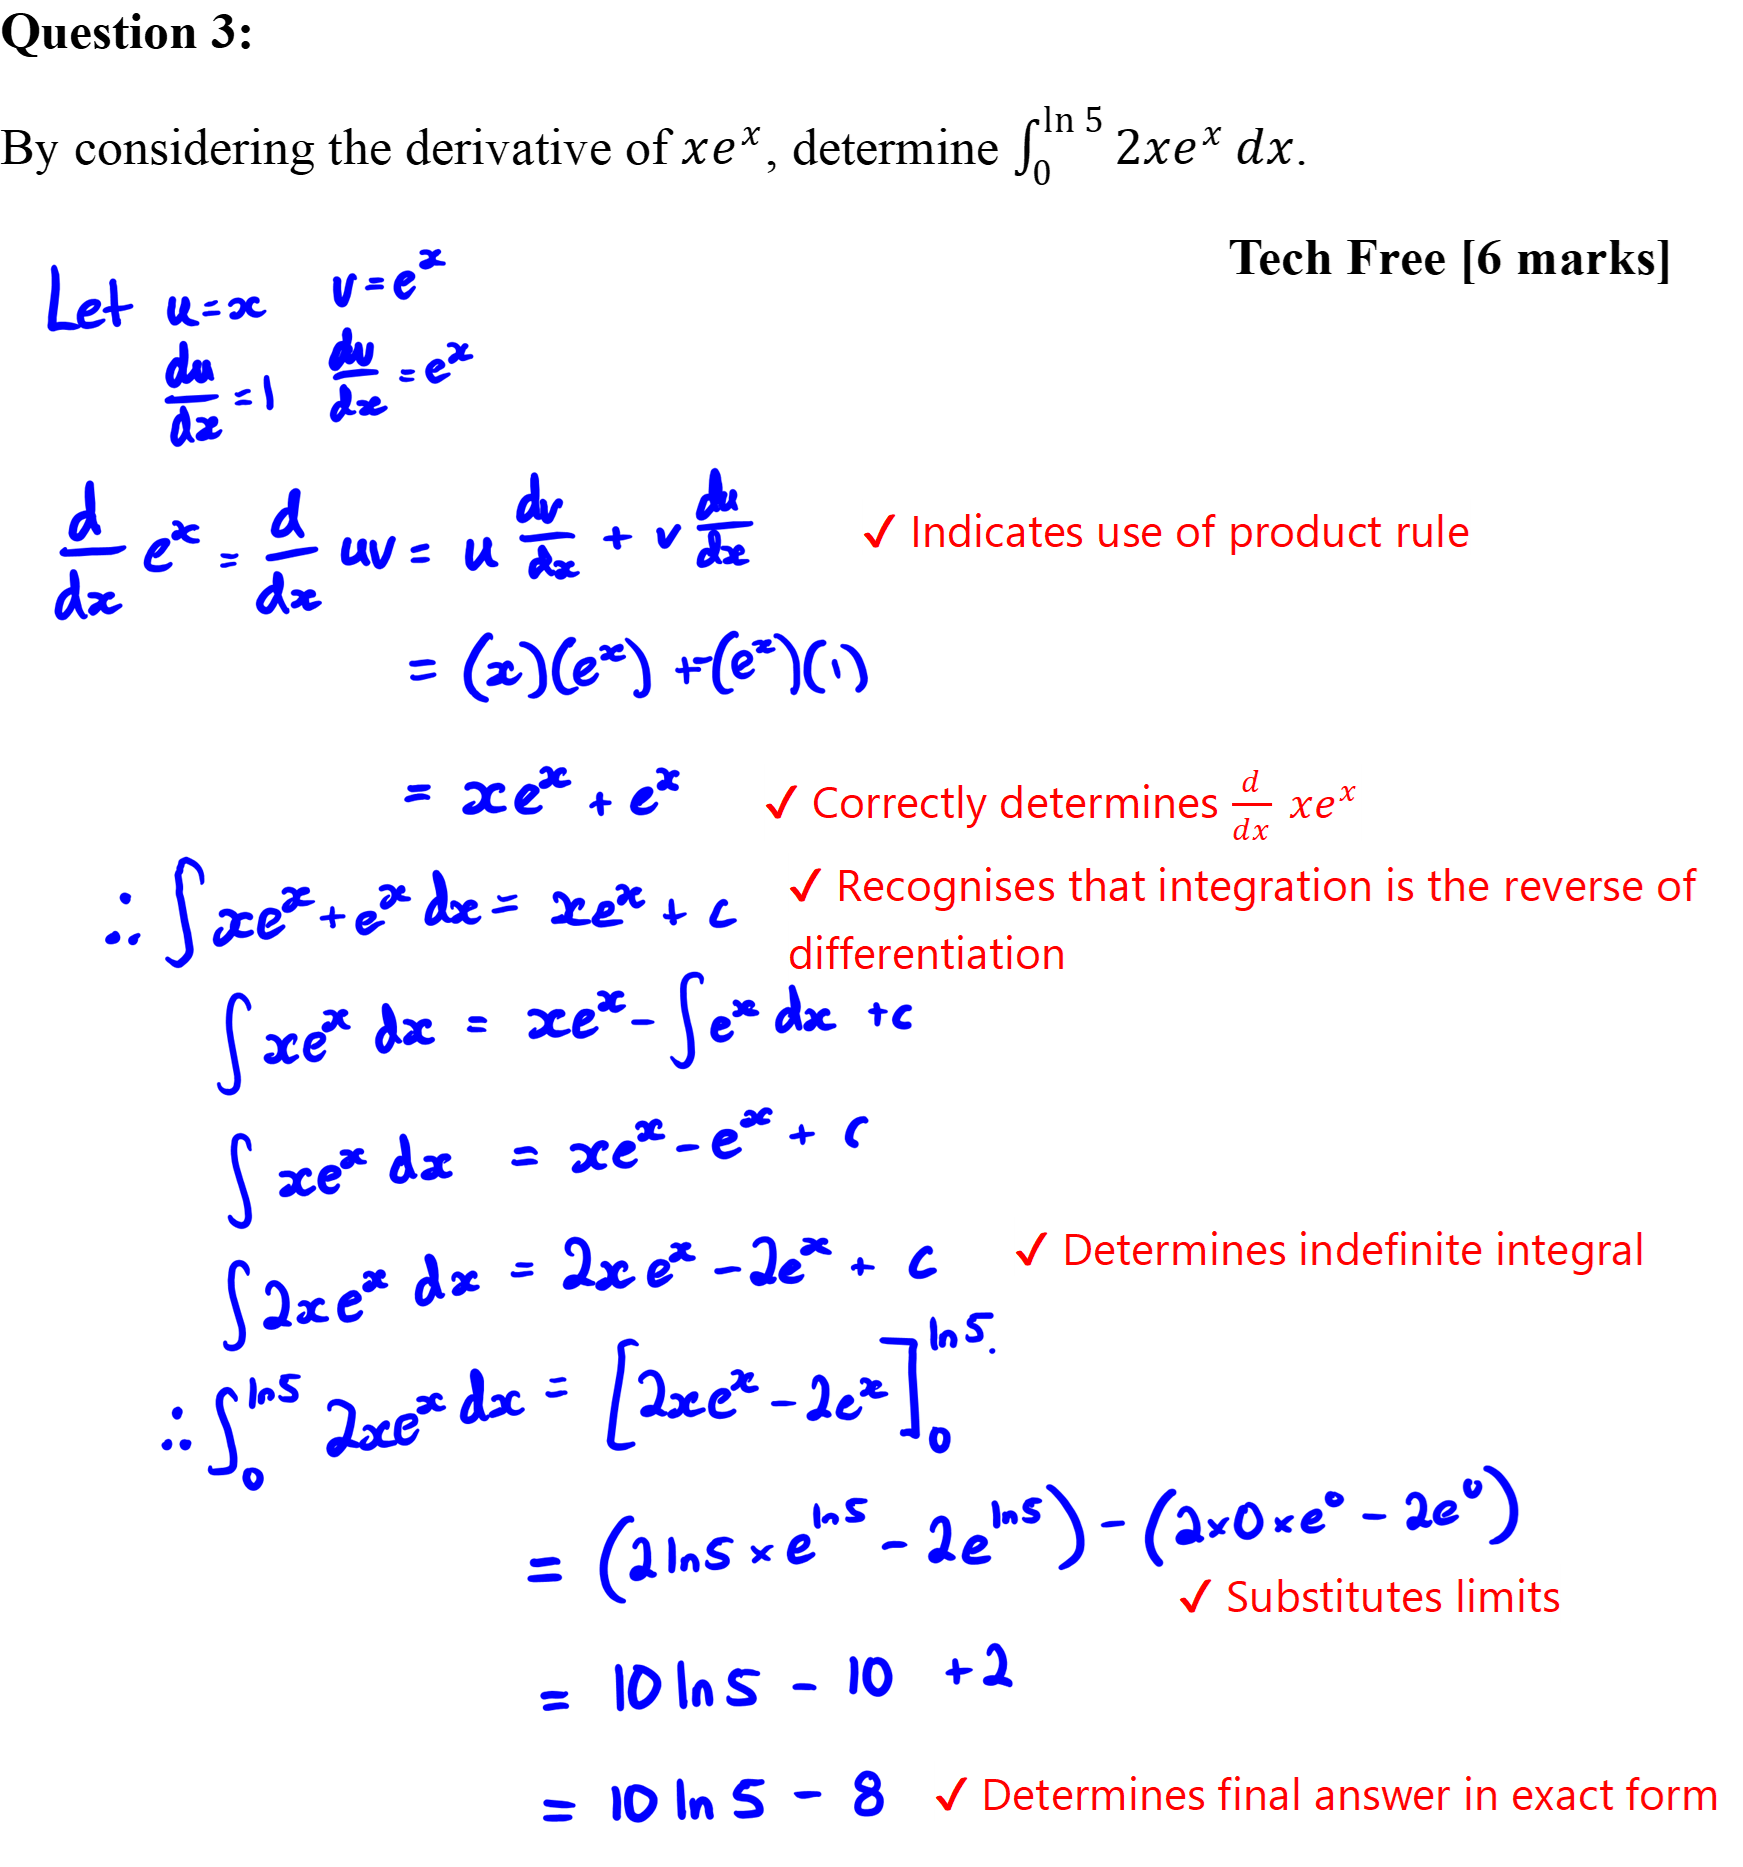 Question 3:
By considering the derivative of xeˣ, determine ∫₀^(ln 5) 2xeˣ dx.
Tech Free [6 marks]
Let u=x v=eˣ
du/dx =1 dv/dx =eˣ
d/dx eˣ = d/dx uv = u dv/dx + v du/dx ✓ Indicates use of product rule
= (x)(eˣ) + (eˣ)(1)
= xeˣ + eˣ ✓ Correctly determines d/dx xeˣ
∴ ∫ xeˣ + eˣ dx = xeˣ + c ✓ Recognises that integration is the reverse of
differentiation
∫ xeˣ dx = xeˣ - ∫ eˣ dx + c
∫ xeˣ dx = xeˣ - eˣ + c
∫ 2xeˣ dx = 2xeˣ - 2eˣ + c ✓ Determines indefinite integral
∴ ∫₀^(ln 5) 2xeˣ dx = [2xeˣ - 2eˣ]₀^(ln 5).
= (2 ln 5 × e^(ln 5) - 2e^(ln 5)) - (2×0×e⁰ - 2e⁰)
✓ Substitutes limits
= 10 ln 5 - 10 + 2
= 10 ln 5 - 8 ✓ Determines final answer in exact form